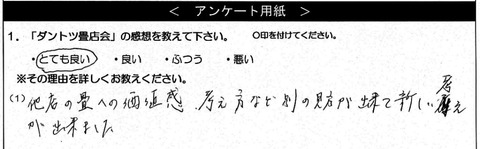 ＜ アンケート用紙 ＞
1．「ダントツ畳店会」の感想を教えて下さい。 〇印を付けてください。
・とても良い ・良い ・ふつう ・悪い
※その理由を詳しくお教えください。
(1) 他店の畳への価値感、考え方など別の見方が出来て新しい考え
が出来ました